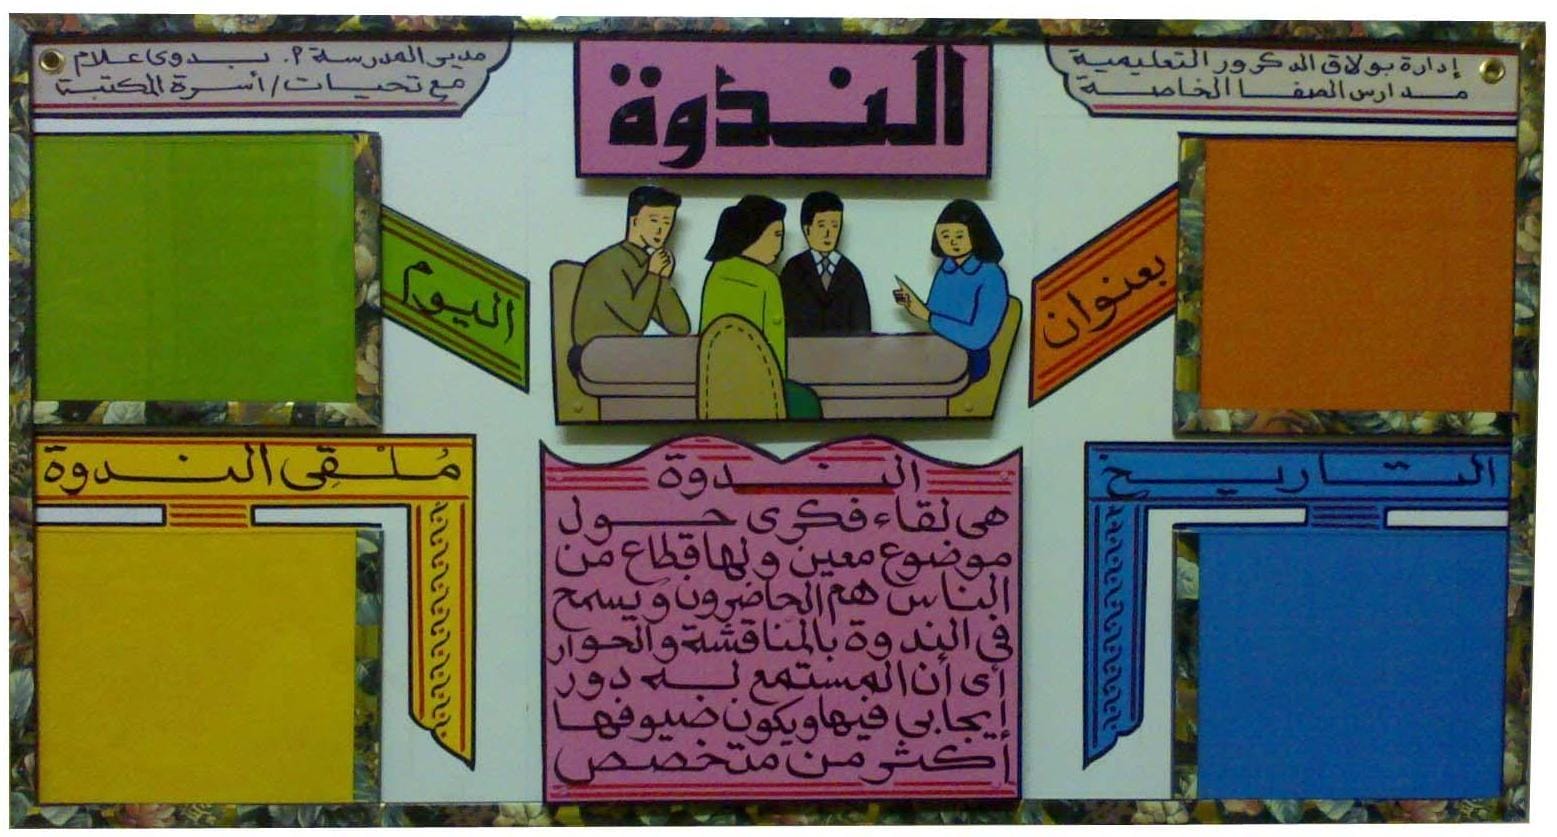 إدارة بولاق الدكرور التعليمية
مدارس الصفا الخاصة
الندوة
مدير المدرسة أ. بدوى علام
مع تحيات / أسرة المكتبة
بعنوان
اليوم
التاريخ
مُلتقِى الندوة
الندوة
هى لقاء فكرى حول
موضوع معين ولها قطاع من
الناس هم الحاضرون ويسمح
فى الندوة بالمناقشة والحوار
أى أن المستمع له دور
إيجابى فيها ويكون ضيوفها
أكثر من متخصص